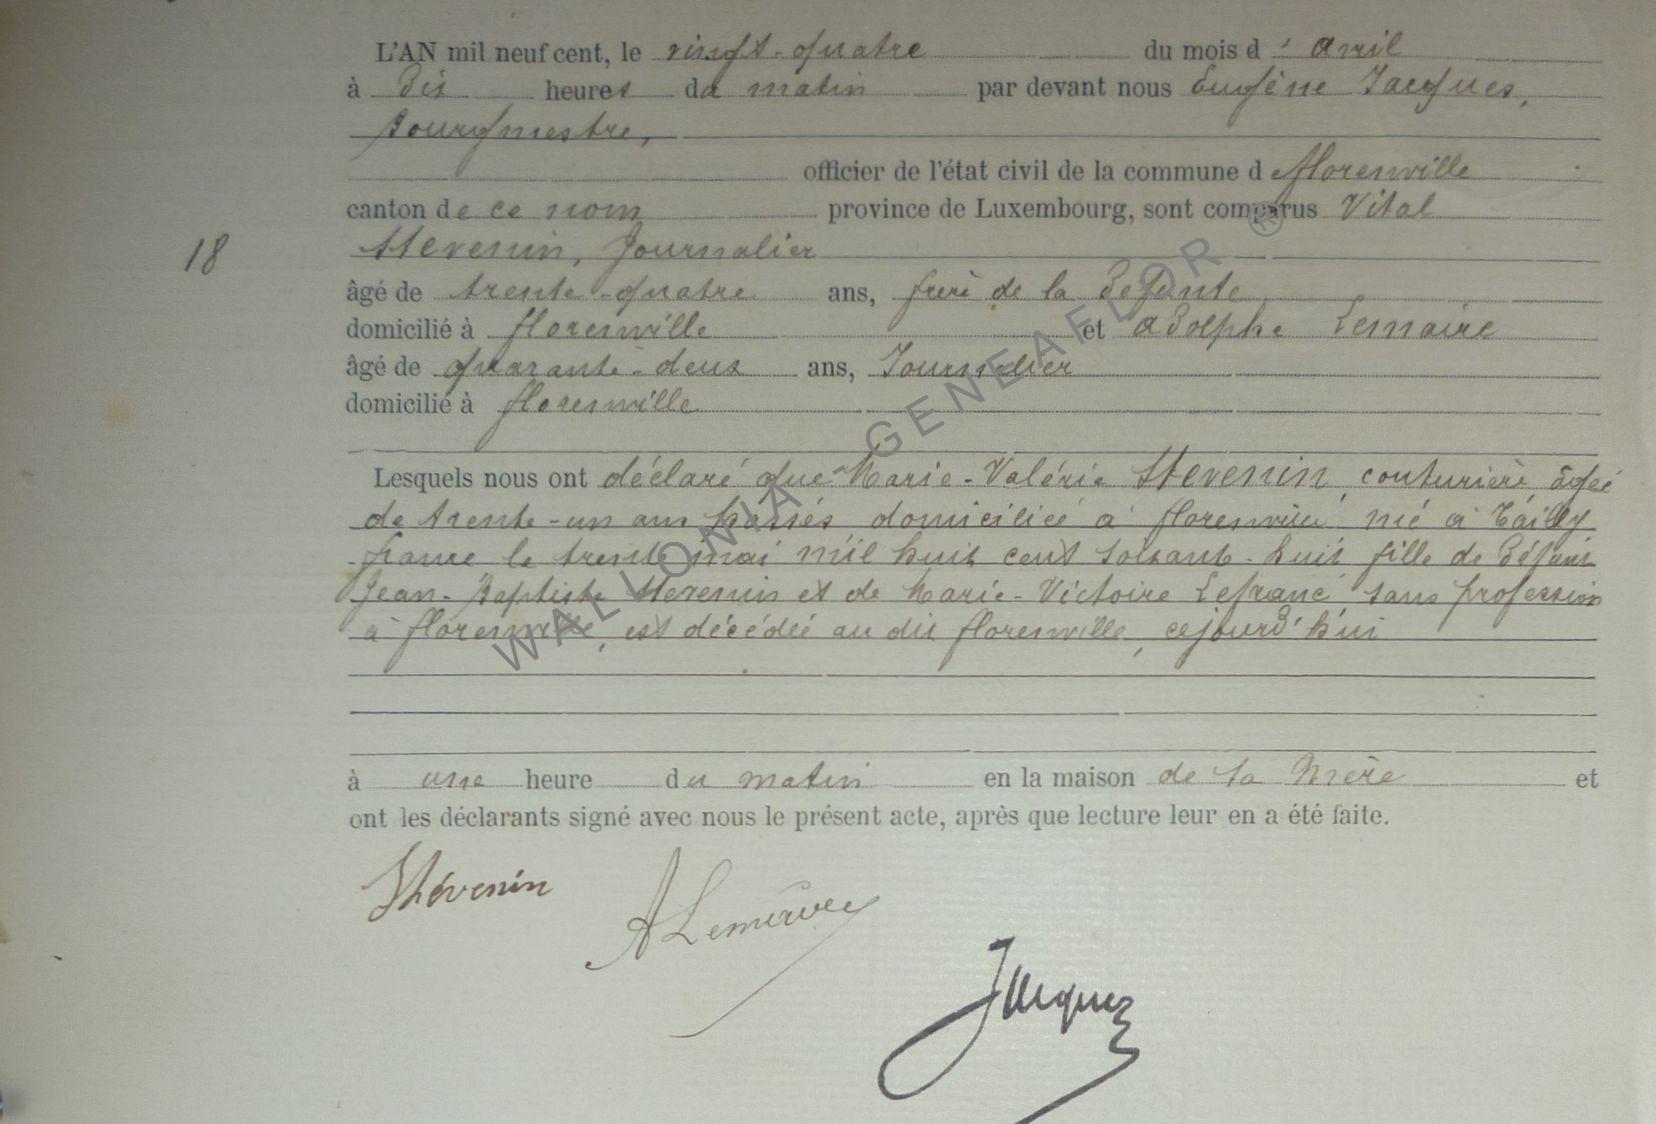 L'AN mil neuf cent, le vingt-quatre du mois d'avril
à Dix heures du matin par devant nous Eugène Jacques,
Bourgmestre,
officier de l'état civil de la commune de florenville
canton de ce nom province de Luxembourg, sont comparus Vital
18 Stevenin, Journalier
âgé de trente-quatre ans, frère de la Defunte
domicilié à florenville et adolphe Lemaire
âgé de quarante-deux ans, Journalier
domicilié à florenville
Lesquels nous ont déclaré que Marie-Valérie Stevenin, couturière âgée
de trente-un ans passés domiciliée à florenville née à Tailly
france le trente mai mil huit cent soixante-huit fille de Défunt
Jean-Baptiste Stevenin et de Marie-Victoire Lefranc, sans profession
à florenville, est décédée au dit florenville, cejourd'hui
à une heure du matin en la maison de sa Mère et
ont les déclarants signé avec nous le présent acte, après que lecture leur en a été faite.
Sthévenin
ALemaire
Jacques
WALLONIA-GENEAFLOR ®